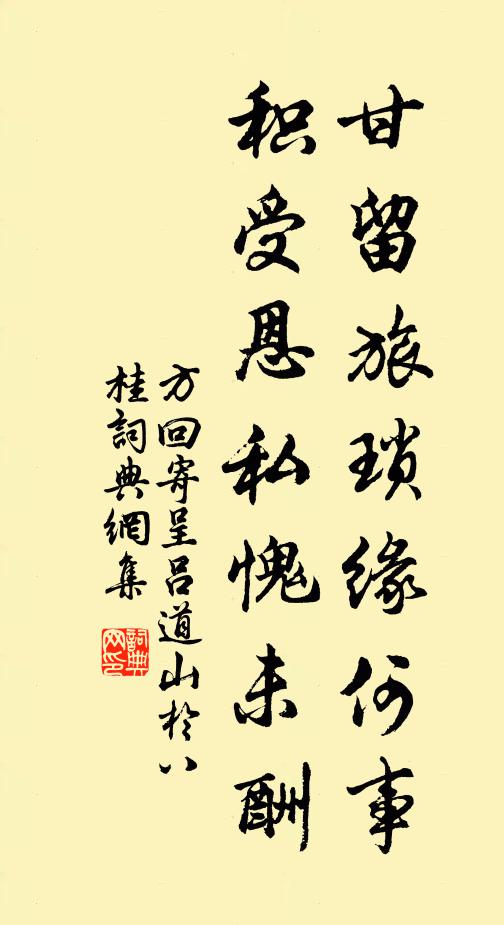 甘留旅琐缘何事
积受恩私愧未酬
方回寄呈吕道山於八
桂詞典網集
詞典
网印